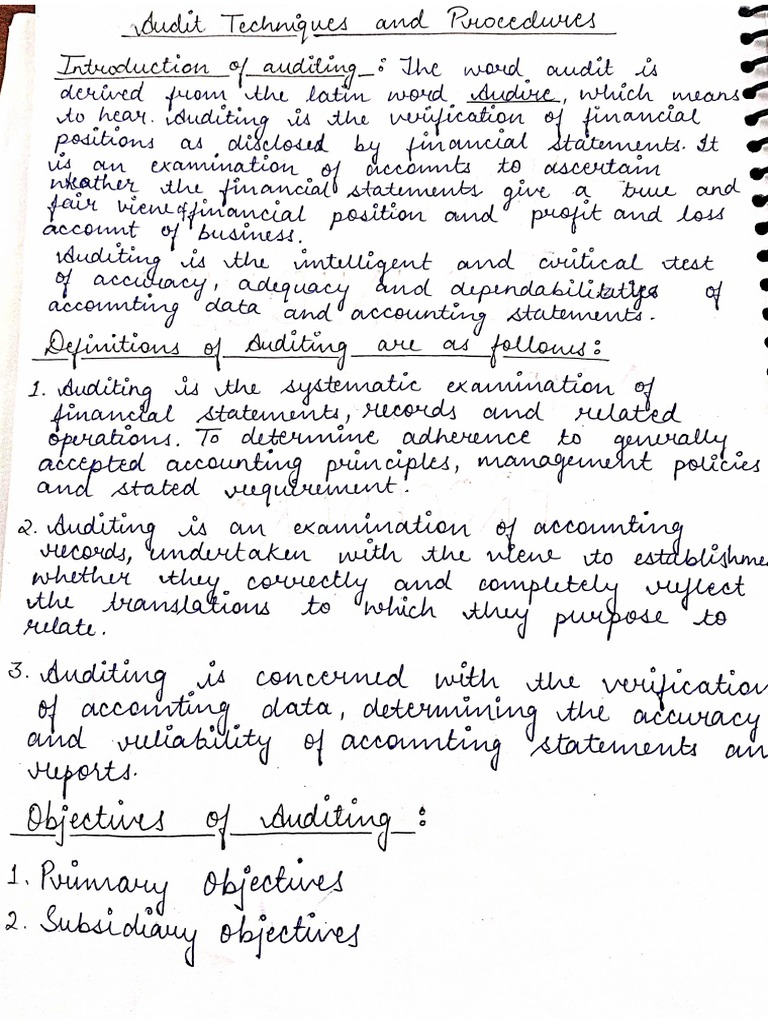 Audit Techniques and Procedures
Introduction of auditing : The word audit is
derived from the latin word Audire, which means
to hear. Auditing is the verification of financial
positions as disclosed by financial statements. It
is an examination of accounts to ascertain
wheather the financial statements give a true and
fair view of financial position and profit and loss
account of business.
Auditing is the intelligent and critical test
of accuracy, adequacy and dependabilit of
accounting data and accounting statements.
Definitions of Auditing are as follows :
1. Auditing is the systematic examination of
financial statements, records and related
operations. To determine adherence to generally
accepted accounting principles, management policies
and stated requirement.
2. Auditing is an examination of accounting
records, undertaken with the view to establishme
whether they correctly and completely reflect
the translations to which they purpose to
relate.
3. Auditing is concerned with the verification
of accounting data, determining the accuracy
and reliability of accounting statements an
reports.
Objectives of Auditing :
1. Primary Objectives
2. Subsidiary objectives